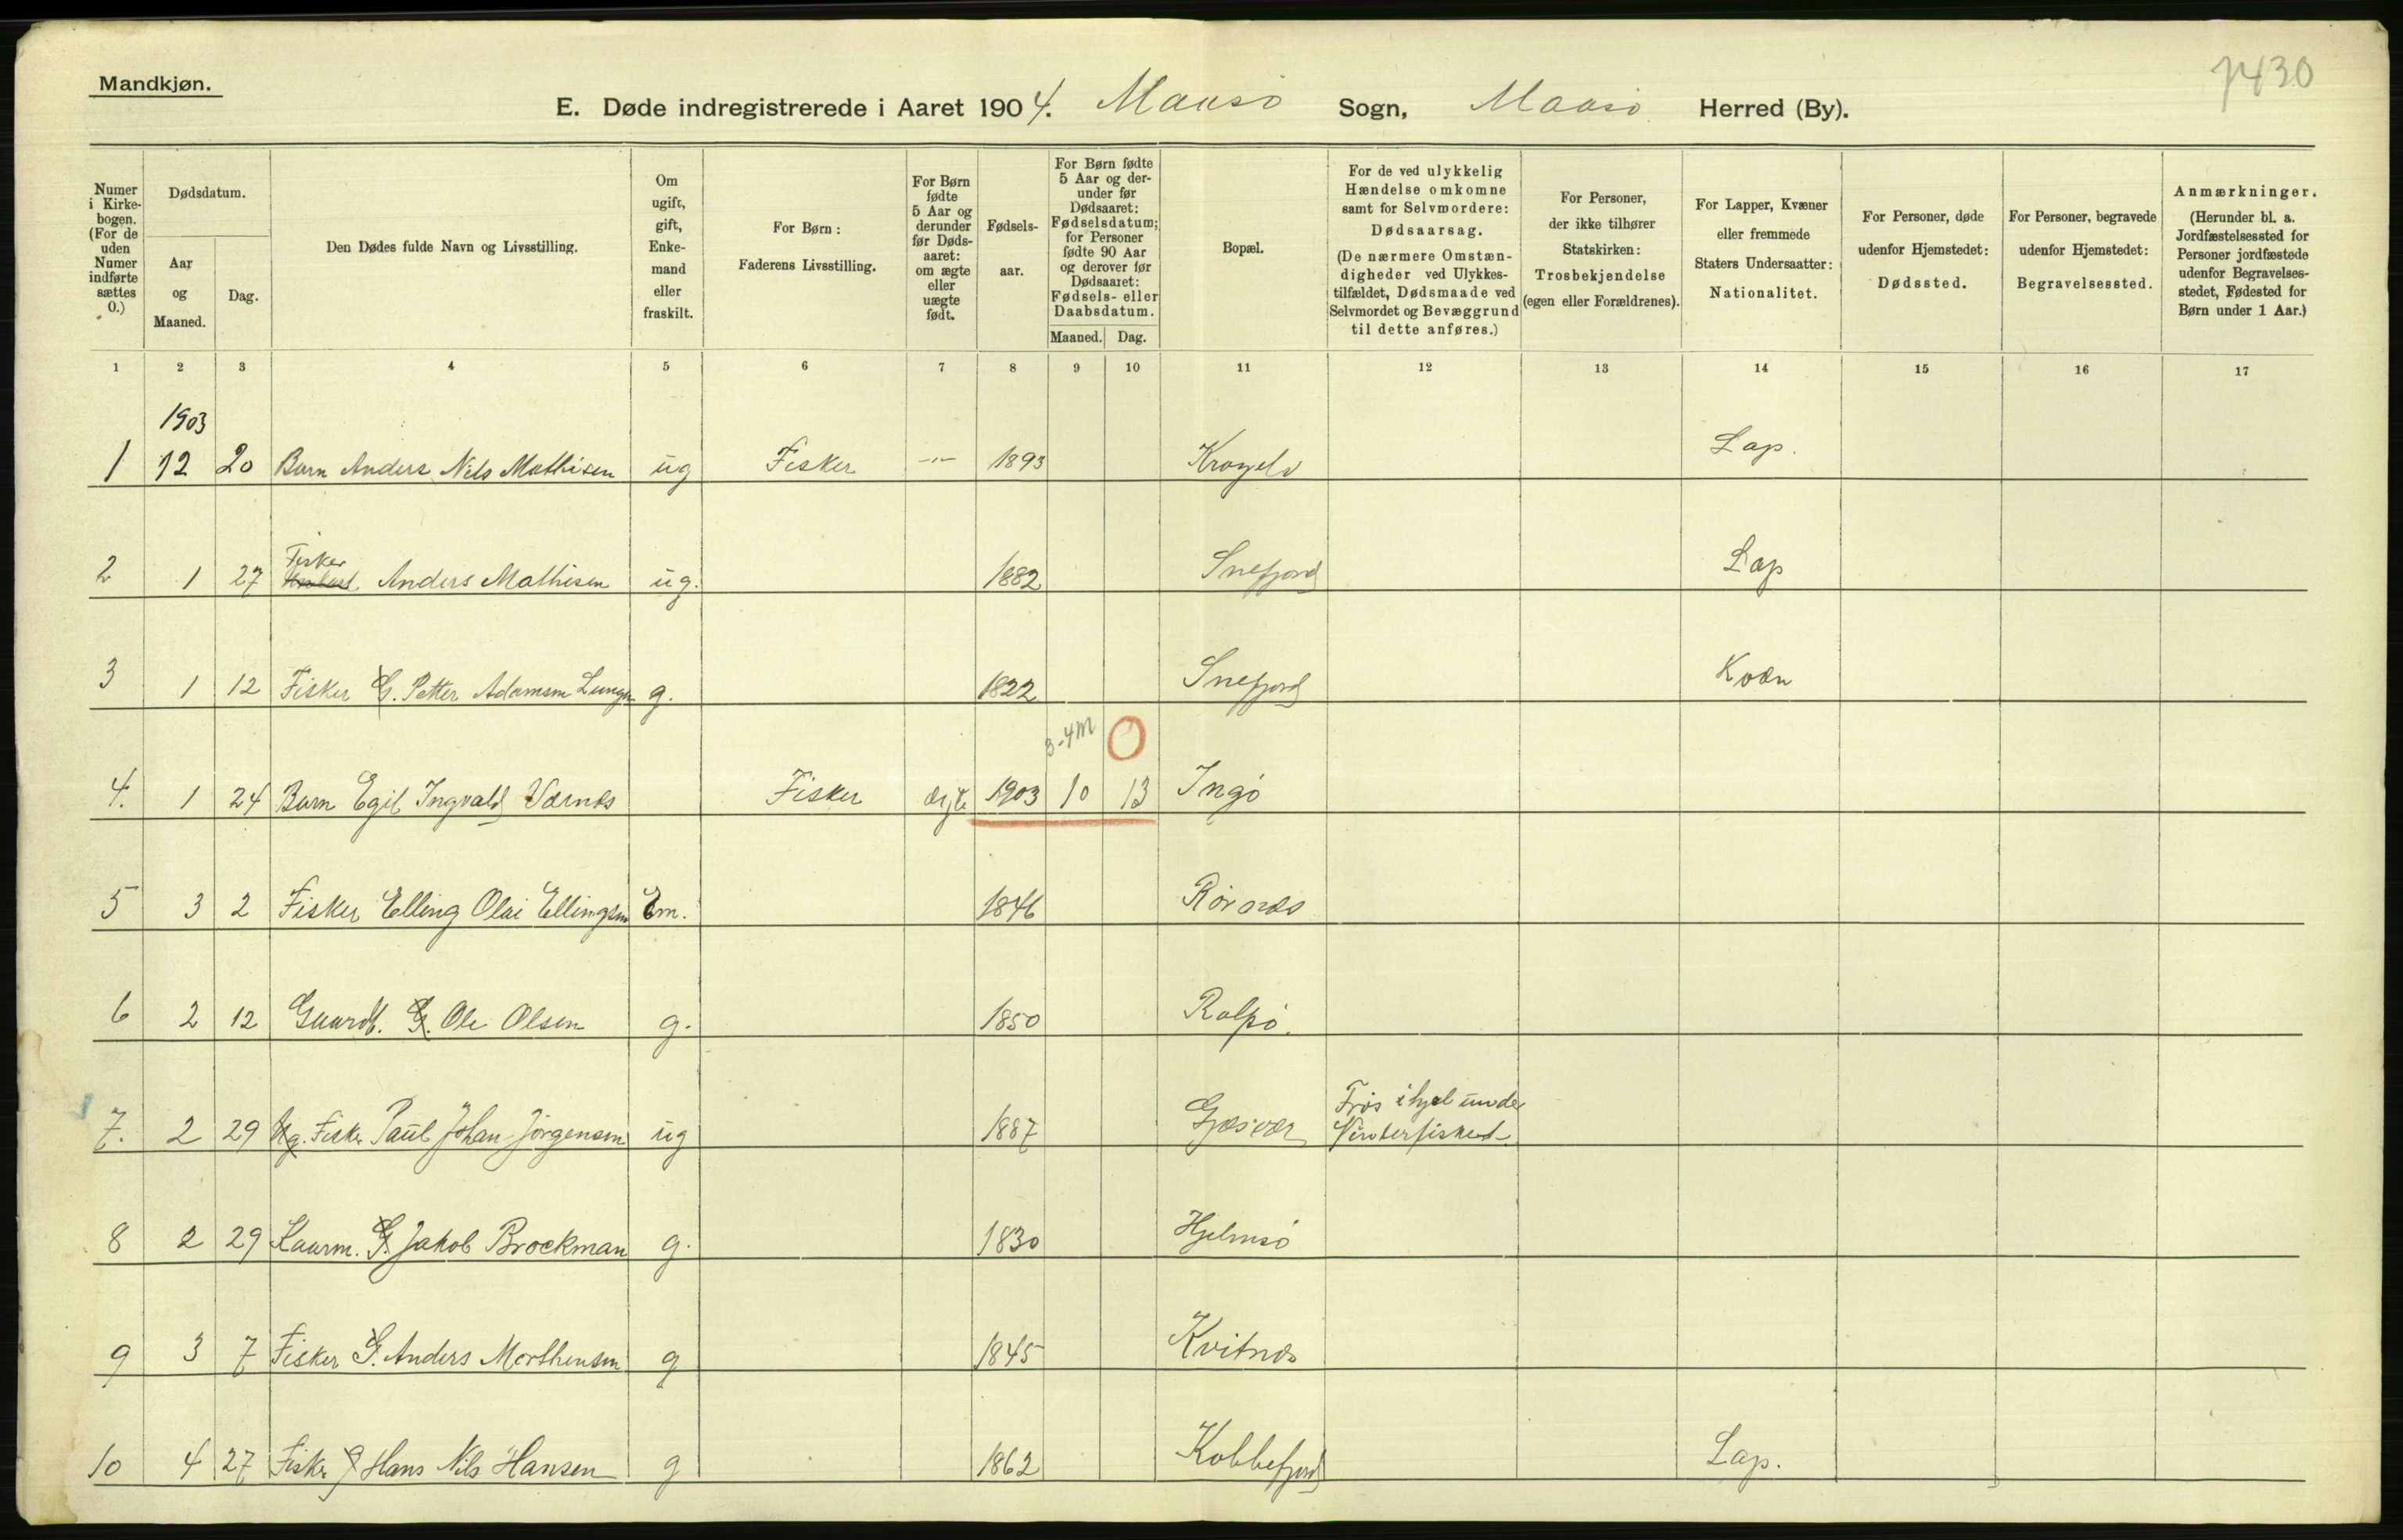 Mandkjøn.
7430
E. Døde indregistrerede i Aaret 1904. Maasø Sogn, Maasø Herred (By).
Numer i Kirkebogen. (For de uden Numer indførte sættes 0.)
Dødsdatum.
Aar og Maaned.
Dag.
Den Dødes fulde Navn og Livsstilling.
Om ugift, gift, Enkemand eller fraskilt.
For Børn: Faderens Livsstilling.
For Børn fødte 5 Aar og derunder før Dødsaaret: om ægte eller uægte født.
Fødselsaar.
For Børn fødte 5 Aar og derunder før Dødsaaret: Fødselsdatum; for Personer fødte 90 Aar og derover før Dødsaaret: Fødsels- eller Daabsdatum.
Maaned. Dag.
Bopæl.
For de ved ulykkelig Hændelse omkomne samt for Selvmordere: Dødsaarsag. (De nærmere Omstændigheder ved Ulykkestilfældet, Dødsmaade ved Selvmordet og Bevæggrund til dette anføres.)
For Personer, der ikke tilhører Statskirken: Trosbekjendelse (egen eller Forældrenes).
For Lapper, Kvæner eller fremmede Staters Undersaatter: Nationalitet.
For Personer, døde udenfor Hjemstedet: Dødssted.
For Personer, begravede udenfor Hjemstedet: Begravelsessted.
Anmærkninger. (Herunder bl. a. Jordfæstelsessted for Personer jordfæstede udenfor Begravelsesstedet, Fødested for Børn under 1 Aar.)
1 2 3 4 5 6 7 8 9 10 11 12 13 14 15 16 17
1903
1 12 20 Barn Anders Nils Mathisen ug Fisker -"- 1893 Lap.
Fisker
2 1 27 Anders Mathisen ug. 1882 Snefjord Lap
3 1 12 Fisker G. Petter Adamsen g. 1822 Snefjord Kvæn
3-4 M 0
4. 1 24 Barn Egil Ingvald Værnes Fisker ægte 1903 10 13 Ingø
5 3 2 Fisker Elling Olai Ellingsen Em. 1846 Rørnæs
6 2 12 Gaardb. G. Ole Olsen g. 1850 Rolfsø.
Frøs ihjel under
7. 2 29 Ug. Fisker Paul Johan Jørgensen ug 1887 Gjæsvær Vinterfisket
8 2 29 Kaarm. G. Jakob Brockman g. 1830 Hjelmsø
9 3 7 Fisker G. Anders Morthensen g 1845 Kvitnæs
10 4 27 Fisker g Hans Nils Hansen g 1862 Kobbefjord Lap.